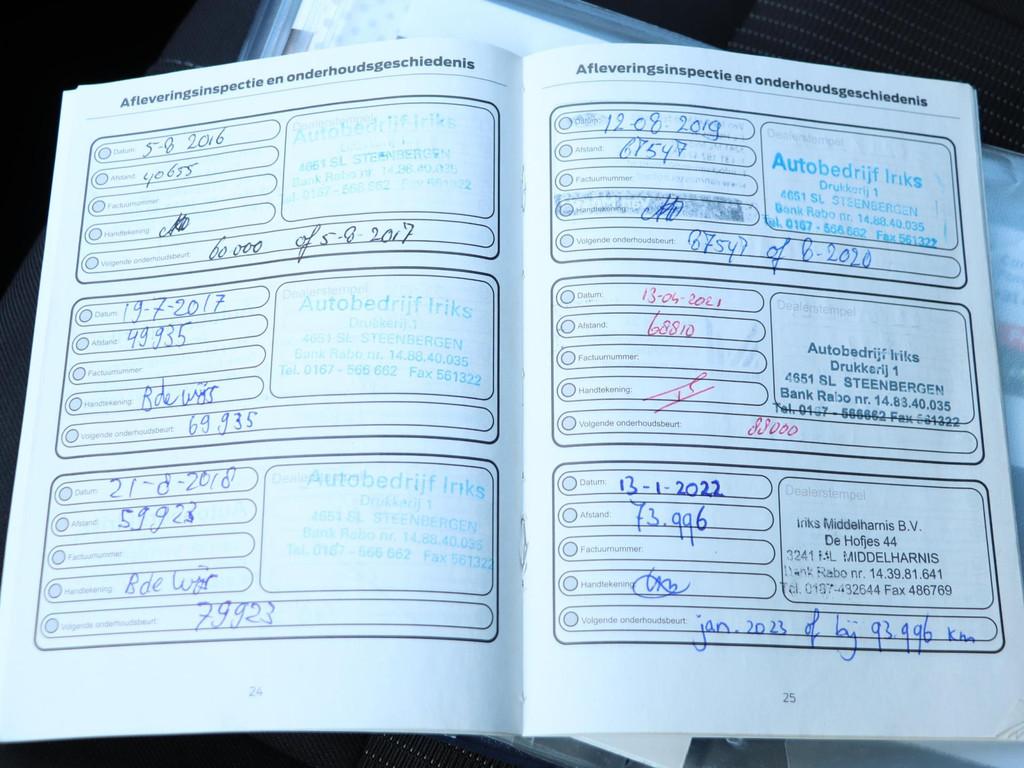 Afleveringsinspectie en onderhoudsgeschiedenis
Datum: 5-8 2016
Afstand: 40655
Factuurnummer:
Handtekening:
Volgende onderhoudsbeurt: 60 000 of 5-8-2017
Dealerstempel
Autobedrijf Iriks
4651 SL STEENBERGEN
Bank Rabo nr. 14.88.40.035
Tel. 0167 - 566 662 Fax 561322
Datum: 19-7-2017
Afstand: 49935
Factuurnummer:
Handtekening: B de Wijs
Volgende onderhoudsbeurt: 69935
Dealerstempel
Autobedrijf Iriks
Drukkerij 1
4651 SL STEENBERGEN
Bank Rabo nr. 14.88.40.035
Tel. 0167 - 566 662 Fax 561322
Datum: 21-8-2018
Afstand: 59923
Factuurnummer:
Handtekening: B de Wijs
Volgende onderhoudsbeurt: 79923
Autobedrijf Iriks
Drukkerij 1
4651 SL STEENBERGEN
Bank Rabo nr. 14.88.40.035
Tel. 0167 - 566 662 Fax 561322
24
Afleveringsinspectie en onderhoudsgeschiedenis
Datum: 12-08-2019
Afstand: 67547
Factuurnummer:
Handtekening:
Volgende onderhoudsbeurt: 87547 of 8-2020
Dealerstempel
Autobedrijf Iriks
Drukkerij 1
4651 SL STEENBERGEN
Bank Rabo nr. 14.88.40.035
Tel. 0167 - 566 662 Fax 561322
Datum: 13-04-2021
Afstand: 68810
Factuurnummer:
Handtekening:
Volgende onderhoudsbeurt: 88000
Dealerstempel
Autobedrijf Iriks
Drukkerij 1
4651 SL STEENBERGEN
Bank Rabo nr. 14.83.40.035
Tel. 0167 - 566662 Fax 561322
Datum: 13-1-2022
Afstand: 73.996
Factuurnummer:
Handtekening:
Volgende onderhoudsbeurt: jan. 2023 of bij 93.996 km
Dealerstempel
Iriks Middelharnis B.V.
De Hofjes 44
3241 ML MIDDELHARNIS
Bank Rabo nr. 14.39.81.641
Tel. 0187-482644 Fax 486769
25